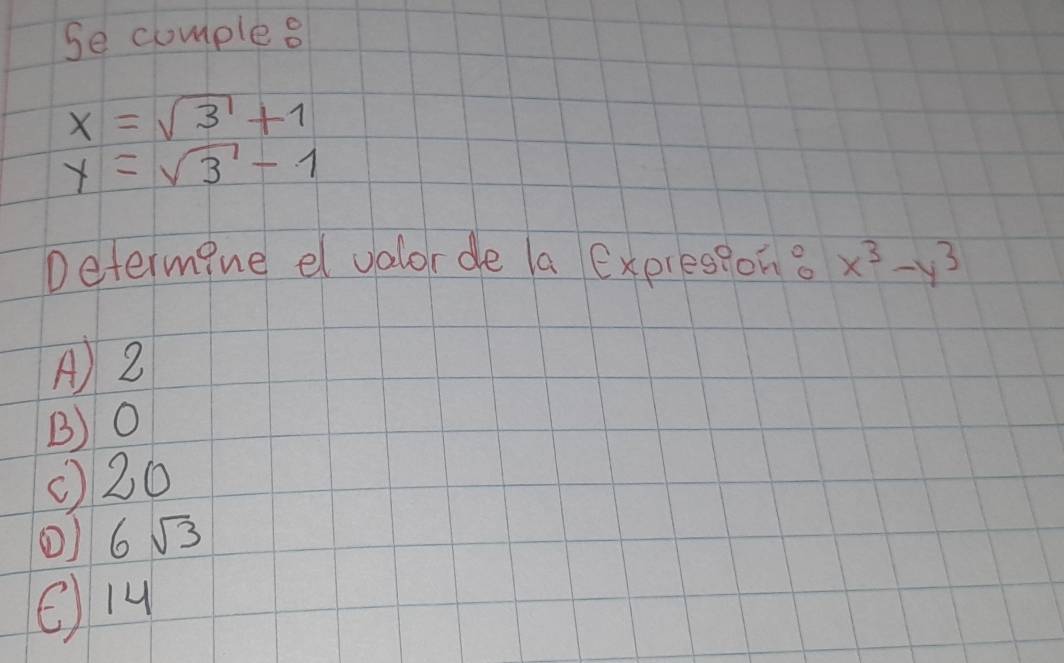 Se cumple:
x = √3 + 1
y = √3 - 1
Determine el valor de la Expresión: x³ - y³
A) 2
B) 0
C) 20
D) 6√3
E) 14